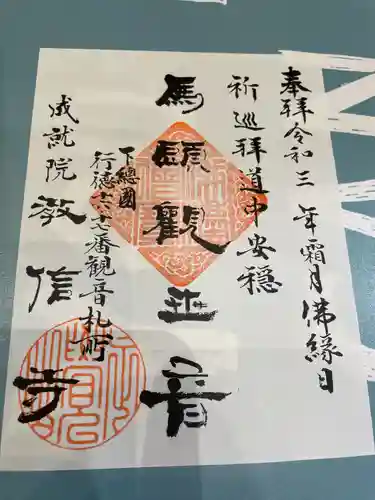 奉拜令和三年霜月佛縁日
祈巡拜道中安穏
馬頭觀世音
下總國
行徳六七番觀音札所
成就院教信寺